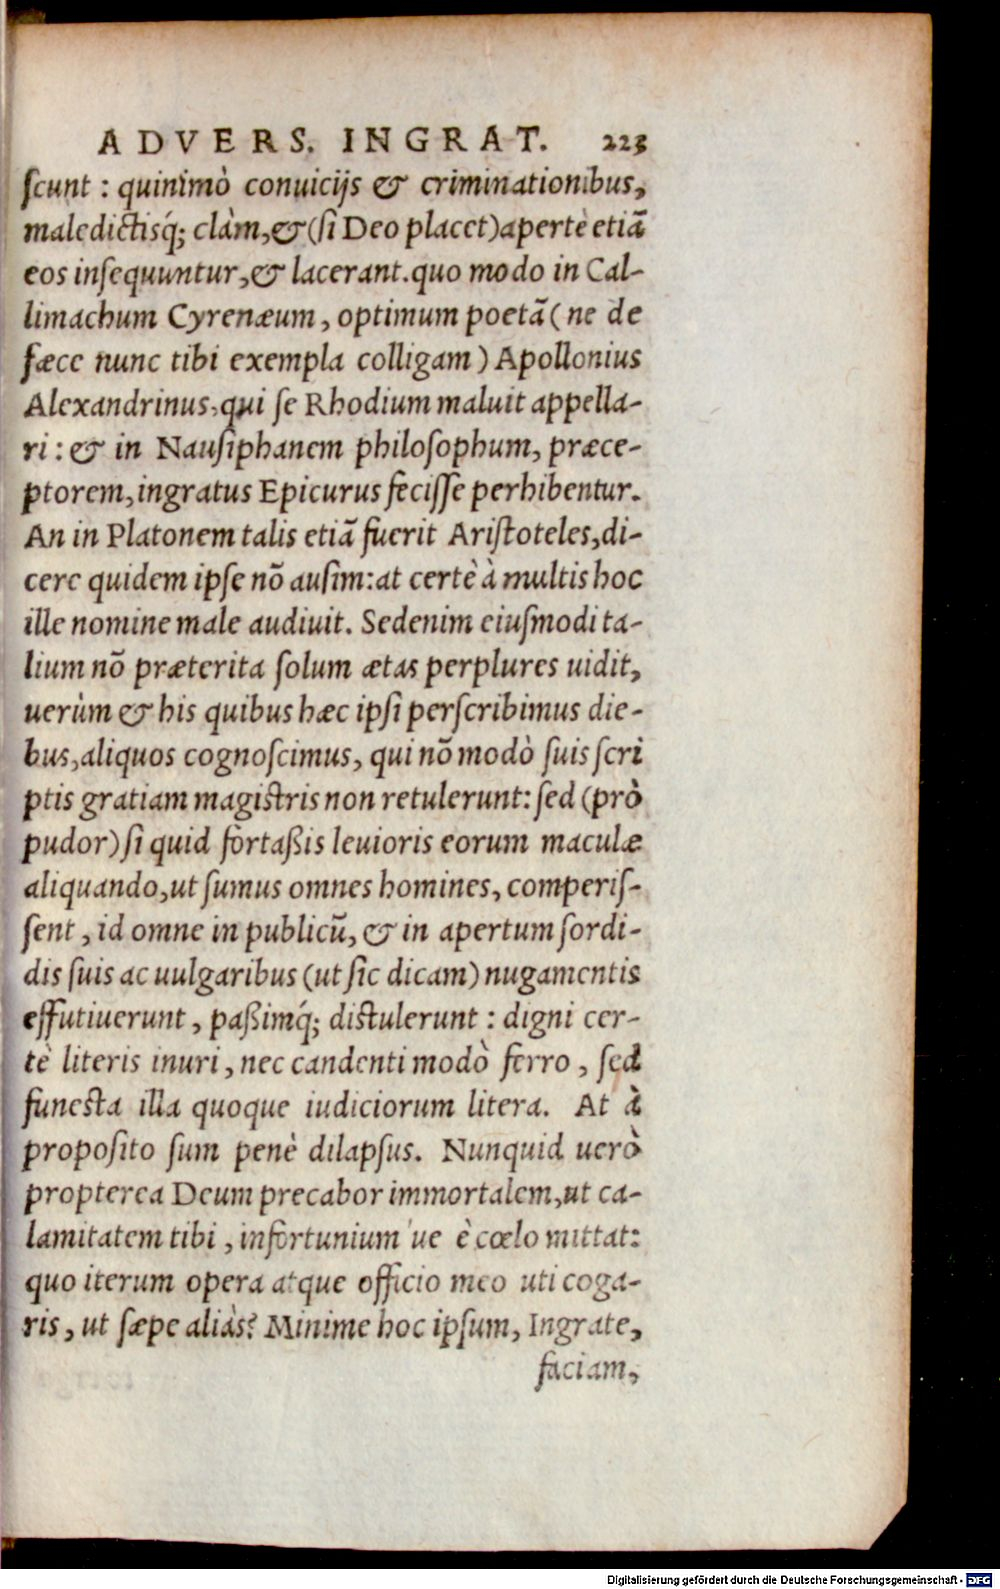 ADVERS. INGRAT. 223
scunt : quinimò conuicijs & criminationibus,
maledictisq́; clàm,&(si Deo placet)apertè etiã
eos insequuntur,& lacerant.quo modo in Cal-
limachum Cyrenæum, optimum poetã( ne de
fæce nunc tibi exempla colligam ) Apollonius
Alexandrinus,qui se Rhodium maluit appella-
ri : & in Nausiphanem philosophum, præce-
ptorem,ingratus Epicurus fecisse perhibentur.
An in Platonem talis etiã fuerit Aristoteles,di-
cere quidem ipse nõ ausim:at certè à multis hoc
ille nomine male audiuit. Sedenim eiusmodi ta-
lium nõ præterita solum ætas perplures uidit,
uerùm & his quibus hæc ipsi perscribimus die-
bus,aliquos cognoscimus, qui nõ modò suis scri
ptis gratiam magistris non retulerunt: sed (prò
pudor) si quid fortaßis leuioris eorum maculæ
aliquando,ut sumus omnes homines, comperis-
sent , id omne in publicũ, & in apertum sordi-
dis suis ac uulgaribus (ut sic dicam) nugamentis
effutiuerunt , paßimq́; distulerunt : digni cer-
tè literis inuri , nec candenti modò ferro , sed
funesta illa quoque iudiciorum litera. At à
proposito sum penè dilapsus. Nunquid uerò
propterea Deum precabor immortalem,ut ca-
lamitatem tibi , infortunium 'ue è cœlo mittat:
quo iterum opera atque officio meo uti coga-
ris, ut sæpe aliàs? Minime hoc ipsum, Ingrate,
faciam,
Digitalisierung gefördert durch die Deutsche Forschungsgemeinschaft - DFG